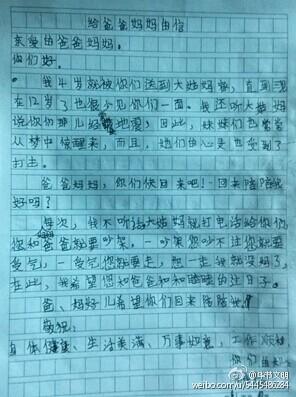 给爸爸妈妈的信
亲爱的爸爸妈妈。
你们好。
我4岁就被你们送到大姑妈劳，直到现
在12岁了也很少见你们一面。我还听大姑妈
说你们那儿经常地震，因此，妹妹们也常常
从梦中惊醒来，而且，她们的心灵也受到了
打击。
爸爸妈妈，你们快回来吧！回来陪陪我
好吗？
每次，我不听话大姑妈就打电话给你们，
你和爸爸就要吵架，一吵架您吵不过您就要
受气，一受气您就要走，想一走我就没妈了，
在此，我希望您和爸爸和和睦睦的过日子。
爸、妈好儿希望你们回来陪陪她！
敬祝：
身体健康、生活美满、万事如意，工作顺利
你们的
@华书文明
weibo.com/u/5445486284